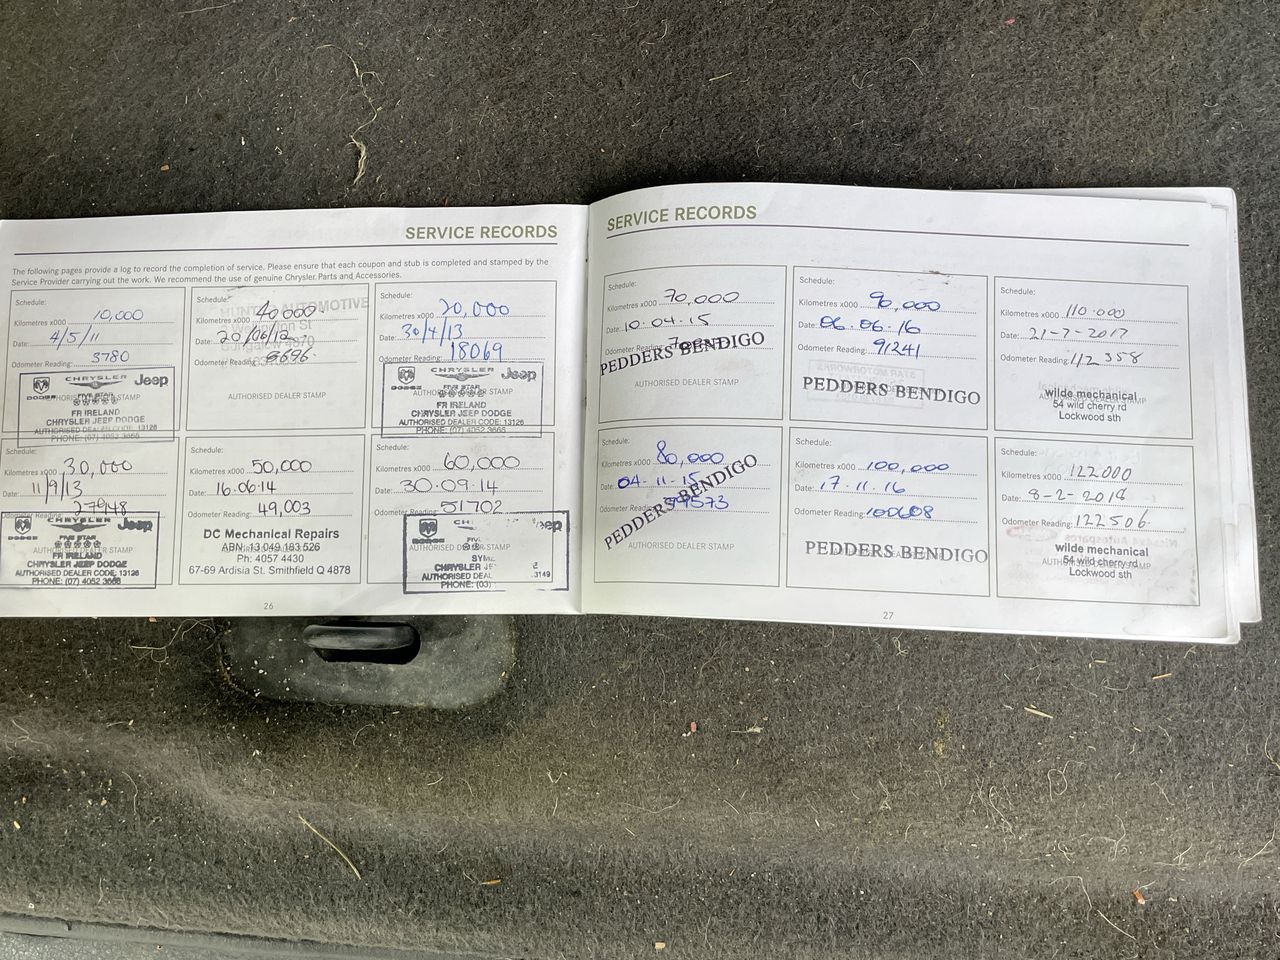 SERVICE RECORDS
The following pages provide a log to record the completion of service. Please ensure that each coupon and stub is completed and stamped by the
Service Provider carrying out the work. We recommend the use of genuine Chrysler Parts and Accessories.
Schedule:
Kilometres x000 10,000
Date: 4/5/11
Odometer Reading: 3780
CHRYSLER Jeep
DODGE FIVE STAR
AUTHORISED DEALER STAMP
FR IRELAND
CHRYSLER JEEP DODGE
AUTHORISED DEALER CODE: 13126
PHONE: (07) 4052 3666
Schedule:
AUTOMOTIVE
Kilometres x000 40000
Date: 20/06/12
Odometer Reading: 9696
AUTHORISED DEALER STAMP
Schedule:
Kilometres x000 20,000
Date: 30/4/13
Odometer Reading: 18069
CHRYSLER Jeep
DODGE FIVE STAR
AUTHORISED DEALER STAMP
FR IRELAND
CHRYSLER JEEP DODGE
AUTHORISED DEALER CODE: 13126
PHONE: (07) 4052 3666
Schedule:
Kilometres x000 30,000
Date: 11/9/13
27948
CHRYSLER Jeep
DODGE FIVE STAR
AUTHORISED DEALER STAMP
FR IRELAND
CHRYSLER JEEP DODGE
AUTHORISED DEALER CODE: 13126
PHONE: (07) 4052 3666
Schedule:
Kilometres x000 50,000
Date: 16.06.14
Odometer Reading: 49,003
DC Mechanical Repairs
ABN: 13 049 183 526
Ph: 4057 4430
67-69 Ardisia St. Smithfield Q 4878
Schedule:
Kilometres x000 60,000
Date: 30.09.14
Odometer Reading: 51702
AUTHORISED DEALER STAMP
CHRYSLER
AUTHORISED DEAL 3149
PHONE: (03)
26
SERVICE RECORDS
Schedule:
Kilometres x000 70,000
Date: 10.04.15
Odometer Reading:
PEDDERS BENDIGO
AUTHORISED DEALER STAMP
Schedule:
Kilometres x000 90,000
Date: 06.06.16
Odometer Reading: 91241
PEDDERS BENDIGO
Schedule:
Kilometres x000 110.000
Date: 21-7-2017
Odometer Reading: 112358
wilde mechanical
54 wild cherry rd
Lockwood sth
Schedule:
Kilometres x000 80,000
Date: 04.11.15
Odometer Reading:
PEDDERS BENDIGO
AUTHORISED DEALER STAMP
Schedule:
Kilometres x000 100,000
Date: 17.11.16
Odometer Reading: 100608
PEDDERS BENDIGO
Schedule:
Kilometres x000 122000
Date: 8-2-2018
Odometer Reading: 122506.
wilde mechanical
54 wild cherry rd
Lockwood sth
27